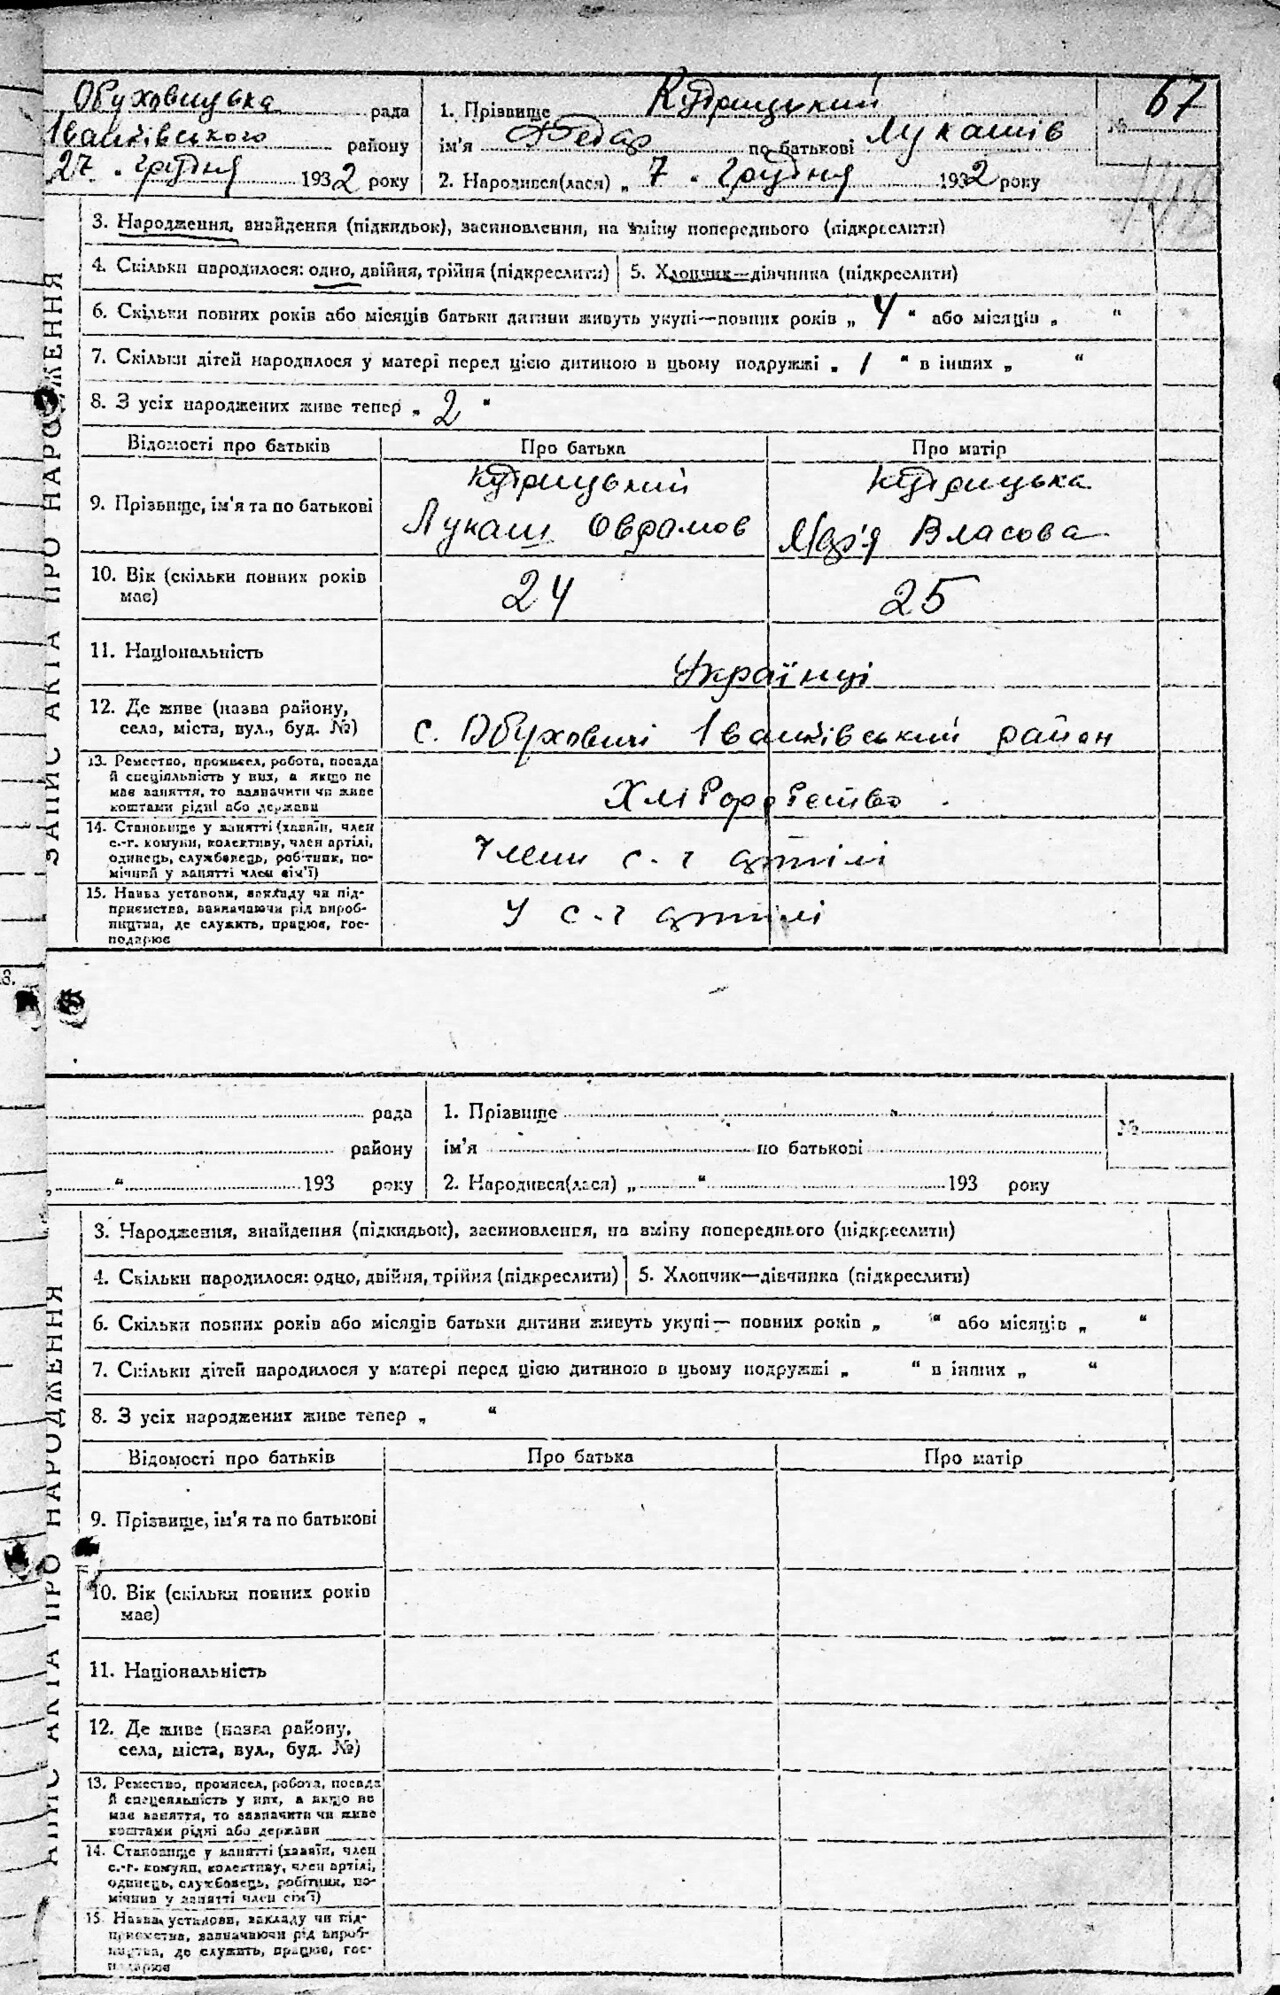 Обуховицька рада
Іванківського району
27 " грудня 1932 року
1. Прізвище Кудрицький
ім'я Федар по батькові Лукашів
2. Народився(лася) „ 7 " грудня 1932 року
№ 67
3. Народження, знайдення (підкидьок), засиновлення, на зміну попереднього (підкреслити)
4. Скільки народилося: одно, двійня, трійня (підкреслити) 5. Хлопчик—дівчинка (підкреслити)
6. Скільки повних років або місяців батьки дитини живуть укупі—повних років „ 4 “ або місяців „ “
7. Скільки дітей народилося у матері перед цією дитиною в цьому подружжі „ 1 “ в інших „ “
8. З усіх народжених живе тепер „ 2 “
Відомості про батьків Про батька Про матір
9. Прізвище, ім'я та по батькові
Кудрицький
Лукаш Оврамов
Кудрицька
Мар'я Власова
10. Вік (скільки повних років
має)
24 25
11. Національність
Українці
12. Де живе (назва району,
села, міста, вул., буд. №)
с. Обуховичі Іванківський район
13. Ремество, промисел, робота, посада
й спеціяльність у них, а якщо не
має заняття, то зазначити чи живе
коштами рідні або держави
Хліборобство
14. Становище у занятті (хазяїн, член
с.-г. комуни, колективу, член артілі,
одинець, службовець, робітник, по-
мічний у занятті член сім'ї)
члени с-г артілі
15. Назва установи, закладу чи під-
приємства, зазначаючи рід вироб-
ництва, де служить, працює, гос-
подарює
У с-г артілі
ЗАПИС АКТА ПРО НАРОДЖЕННЯ
рада
району
„ “ 193 року
1. Прізвище
ім'я по батькові
2. Народився(лася) „ “ 193 року
№
3. Народження, знайдення (підкидьок), засиновлення, на зміну попереднього (підкреслити)
4. Скільки народилося: одно, двійня, трійня (підкреслити) 5. Хлопчик—дівчинка (підкреслити)
6. Скільки повних років або місяців батьки дитини живуть укупі— повних років „ “ або місяців „ “
7. Скільки дітей народилося у матері перед цією дитиною в цьому подружжі „ “ в інших „ “
8. З усіх народжених живе тепер „ “
Відомості про батьків Про батька Про матір
9. Прізвище, ім'я та по батькові
10. Вік (скільки повних років
має)
11. Національність
12. Де живе (назва району,
села, міста, вул., буд. №)
13. Ремество, промисел, робота, посада
й спецеяльність у них, а якщо не
має заняття, то зазначити чи живе
коштами рідні або держави
14. Становище у занятті (хазяїн, член
с.-г. комуни, колективу, член артілі,
одинець, службовець, робітник, по-
мічник у занятті член сім'ї)
15 Назва установи, закладу чи під-
приємства, зазначаючи рід вироб-
ництва, де служить, працює, гос-
подарює
АПИС АКТА ПРО НАРОДЖЕННЯ